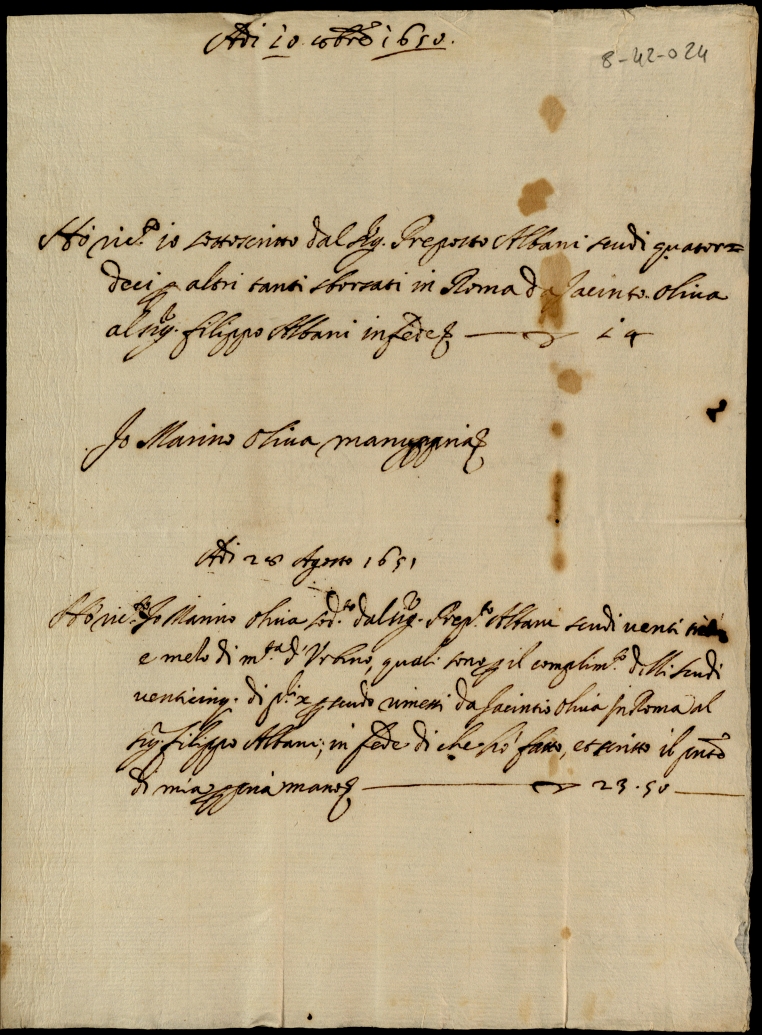 Adi 10 8bre 1650.
8-42-024
Hò ric.to io sottoscritto dal Sig. Preposto Albani scudi quator=
deci p altri tanti sborsati in Roma da Jacinto Oliva
al Sig. Filippo Albani in fede 14
Jo Marino Oliva manu ppria
Adi 28 Agosto 1651
Hò ric.to Jo Marino Oliva sod.to dal Sig. Prep.to Albani scudi venti trè
e mezo di m.ta d'Urbino, quali sono p il complim.to delli scudi
venticinq. di p scudo rimessi da Jacinto Oliva in Roma al
Sig. Filippo Albani; in fede di che hò fatto, et scritto il pnte
di mia ppria mano 23.50